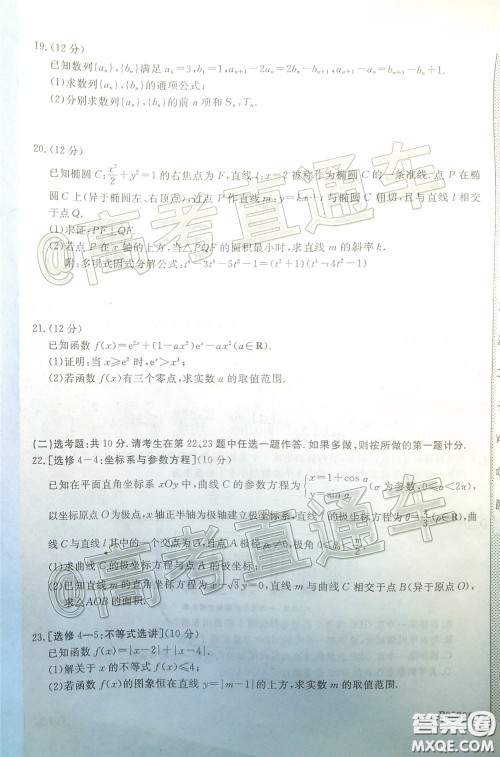 19.(12分)
已知数列{aₙ},{bₙ}满足a₁=3,b₁=1,aₙ₊₁-2aₙ=2bₙ-bₙ₊₁,aₙ₊₁-aₙ=bₙ₊₁-bₙ+1.
(1)求数列{aₙ},{bₙ}的通项公式;
(2)分别求数列{aₙ},{bₙ}的前n项和Sₙ,Tₙ.
20.(12分)
已知椭圆C:x²/2+y²=1的右焦点为F,直线l:x=2被称作为椭圆C的一条准线.点P在椭
圆C上(异于椭圆左、右顶点),过点P作直线m:y=kx+t与椭圆C相切,且与直线l相交
于点Q.
(1)求证:PF⊥QF.
(2)若点P在x轴的上方,当△PQF的面积最小时,求直线m的斜率k.
附:多项式因式分解公式:t⁶-3t⁴-5t²-1=(t²+1)(t⁴-4t²-1)
21.(12分)
已知函数f(x)=e²ˣ+(1-ax²)eˣ-ax²(a∈R).
(1)证明:当x≥e²时,eˣ>x³;
(2)若函数f(x)有三个零点,求实数a的取值范围.
(二)选考题:共10分.请考生在第22、23题中任选一题作答.如果多做,则按所做的第一题计分.
22.[选修4-4:坐标系与参数方程](10分)
已知在平面直角坐标系xOy中,曲线C的参数方程为{x=1+cosα y=sinα (α为参数,0≤α<2π),
以坐标原点O为极点,x轴正半轴为极轴建立极坐标系,直线l的极坐标方程为θ=π/3(ρ∈R),曲
线C与直线l其中的一个交点为A,且点A极径ρ₀≠0,极角0≤θ₀<π/2.
(1)求曲线C的极坐标方程与点A的极坐标;
(2)已知直线m的直角坐标方程为x-√3y=0,直线m与曲线C相交于点B(异于原点O),
求△AOB的面积.
23.[选修4-5:不等式选讲](10分)
已知函数f(x)=|x-2|+|x-4|.
(1)解关于x的不等式f(x)≤4;
(2)若函数f(x)的图象恒在直线y=|m-1|的上方,求实数m的取值范围.
@高考直通车
@高考直通车
答案圈
MXQE.COM